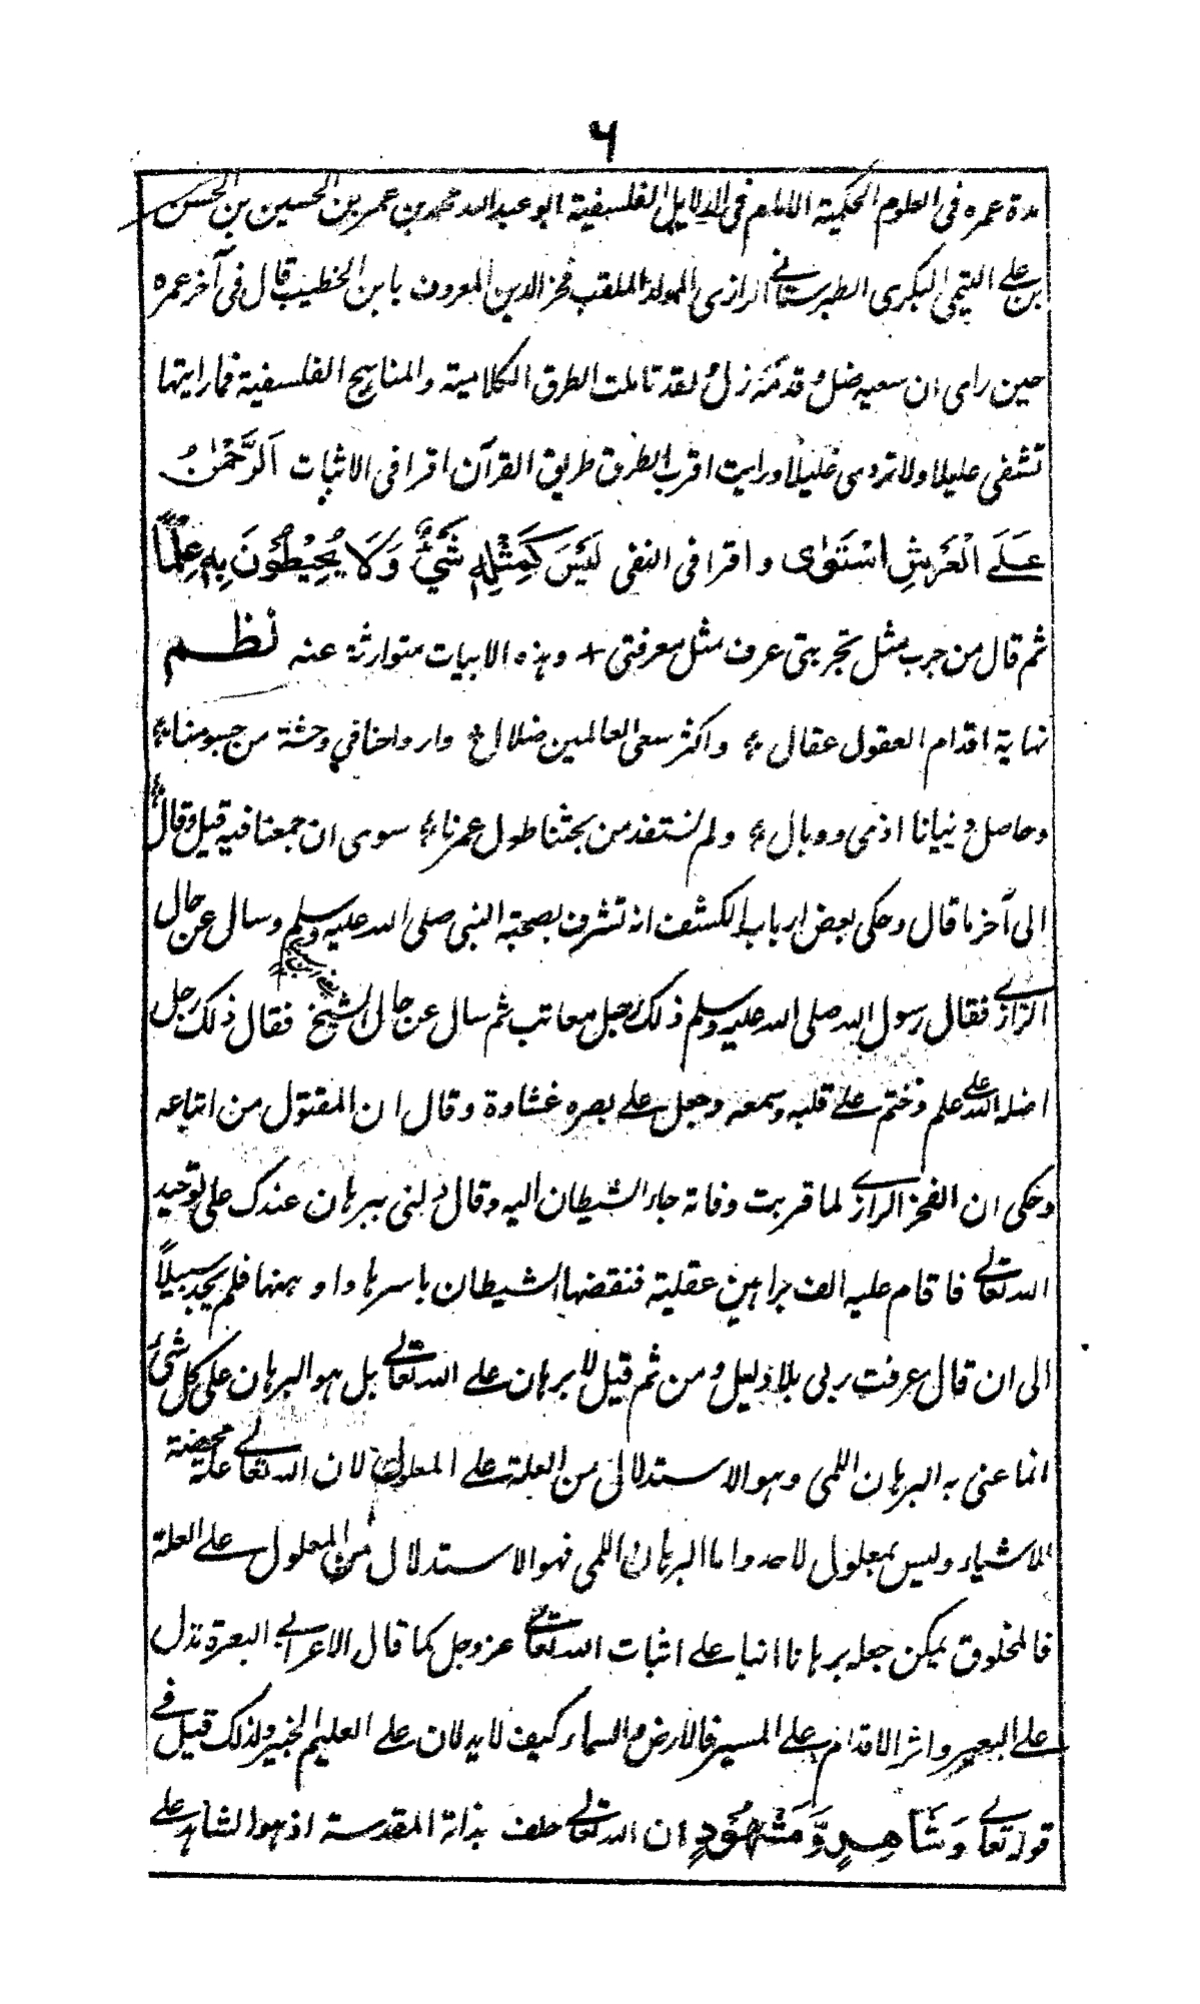 ٦
مدة عمره فى العلوم الحكمية الامام فى الدلايل الفلسفية ابو عبد الله محمد بن عمر بن الحسين بن الحسن
بن على التيمى البكرى الطبرستانى الرازى المولد الملقب فخر الدين المعروف بابن الخطيب قال فى آخر عمره
حين راى ان سعيه ضل وقدمه زل لقد تاملت الطرق الكلامية والمناهج الفلسفية فما رايتها
تشفى عليلا ولا تروى غليلا ورايت اقرب الطرق طريق القرآن اقرا فى الاثبات اَلرَّحْمٰنُ
عَلَى الْعَرْشِ اسْتَوٰى واقرا فى النفى لَيْسَ كَمِثْلِهٖ شَيْءٌ وَلَا يُحِيْطُوْنَ بِهٖ عِلْمًا
ثم قال من جرب مثل تجربتى عرف مثل معرفتى + وهذه الابيات متوارثة عنه نظم
نهاية اقدام العقول عقال ؛ واكثر سعى العالمين ضلال ؛ وارواحنا في وحشة من جسومنا ؛
وحاصل دنيانا اذى ووبال ؛ ولم نستفد من بحثنا طول عمرنا ؛ سوى ان جمعنا فيه قيل وقال ؛
الى آخر ما قال وحكى بعض ارباب الكشف انه تشرف بصحبة النبى صلى الله عليه وسلم وسال عن حال
الرازى فقال رسول الله صلى الله عليه وسلم ذلك رجل معاتب ثم سال عن حال الشيخ فقال ذلك رجل
اضله الله على علم وختم على قلبه وسمعه وجعل على بصره غشاوة وقال ان المقتول من اتباعه
وحكى ان الفخر الرازى لما قربت وفاته جاء الشيطان اليه وقال دلنى ببرهان عندك على توحيد
الله تعالى فاقام عليه الف براهين عقلية فنقضها الشيطان باسرها واوهنها فلم يجد سبيلاً
الى ان قال عرفت ربى بلا دليل ومن ثم قيل لا برهان على الله تعالى بل هو البرهان على كل شئ
انما عنى به البرهان اللمى وهو الاستدلال من العلة على المعلول لان الله تعالى علة محضة
للاشياء وليس بمعلول لاحد واما البرهان اللمى فهو الاستدلال من المعلول على العلة
فالمخلوق يمكن جعله برهانا انيا على اثبات الله تعالى عز وجل كما قال الاعرابى البعرة تدل
على البعير واثر الاقدام على المسير فالارض والسماء كيف لا يدلان على العليم الخبير ولذلك قيل فى
قوله تعالى وَشَاهِدٍ وَّمَشْهُوْدٍ ان الله تعالى حلف بذاته المقدسة اذ هو الشاهد على